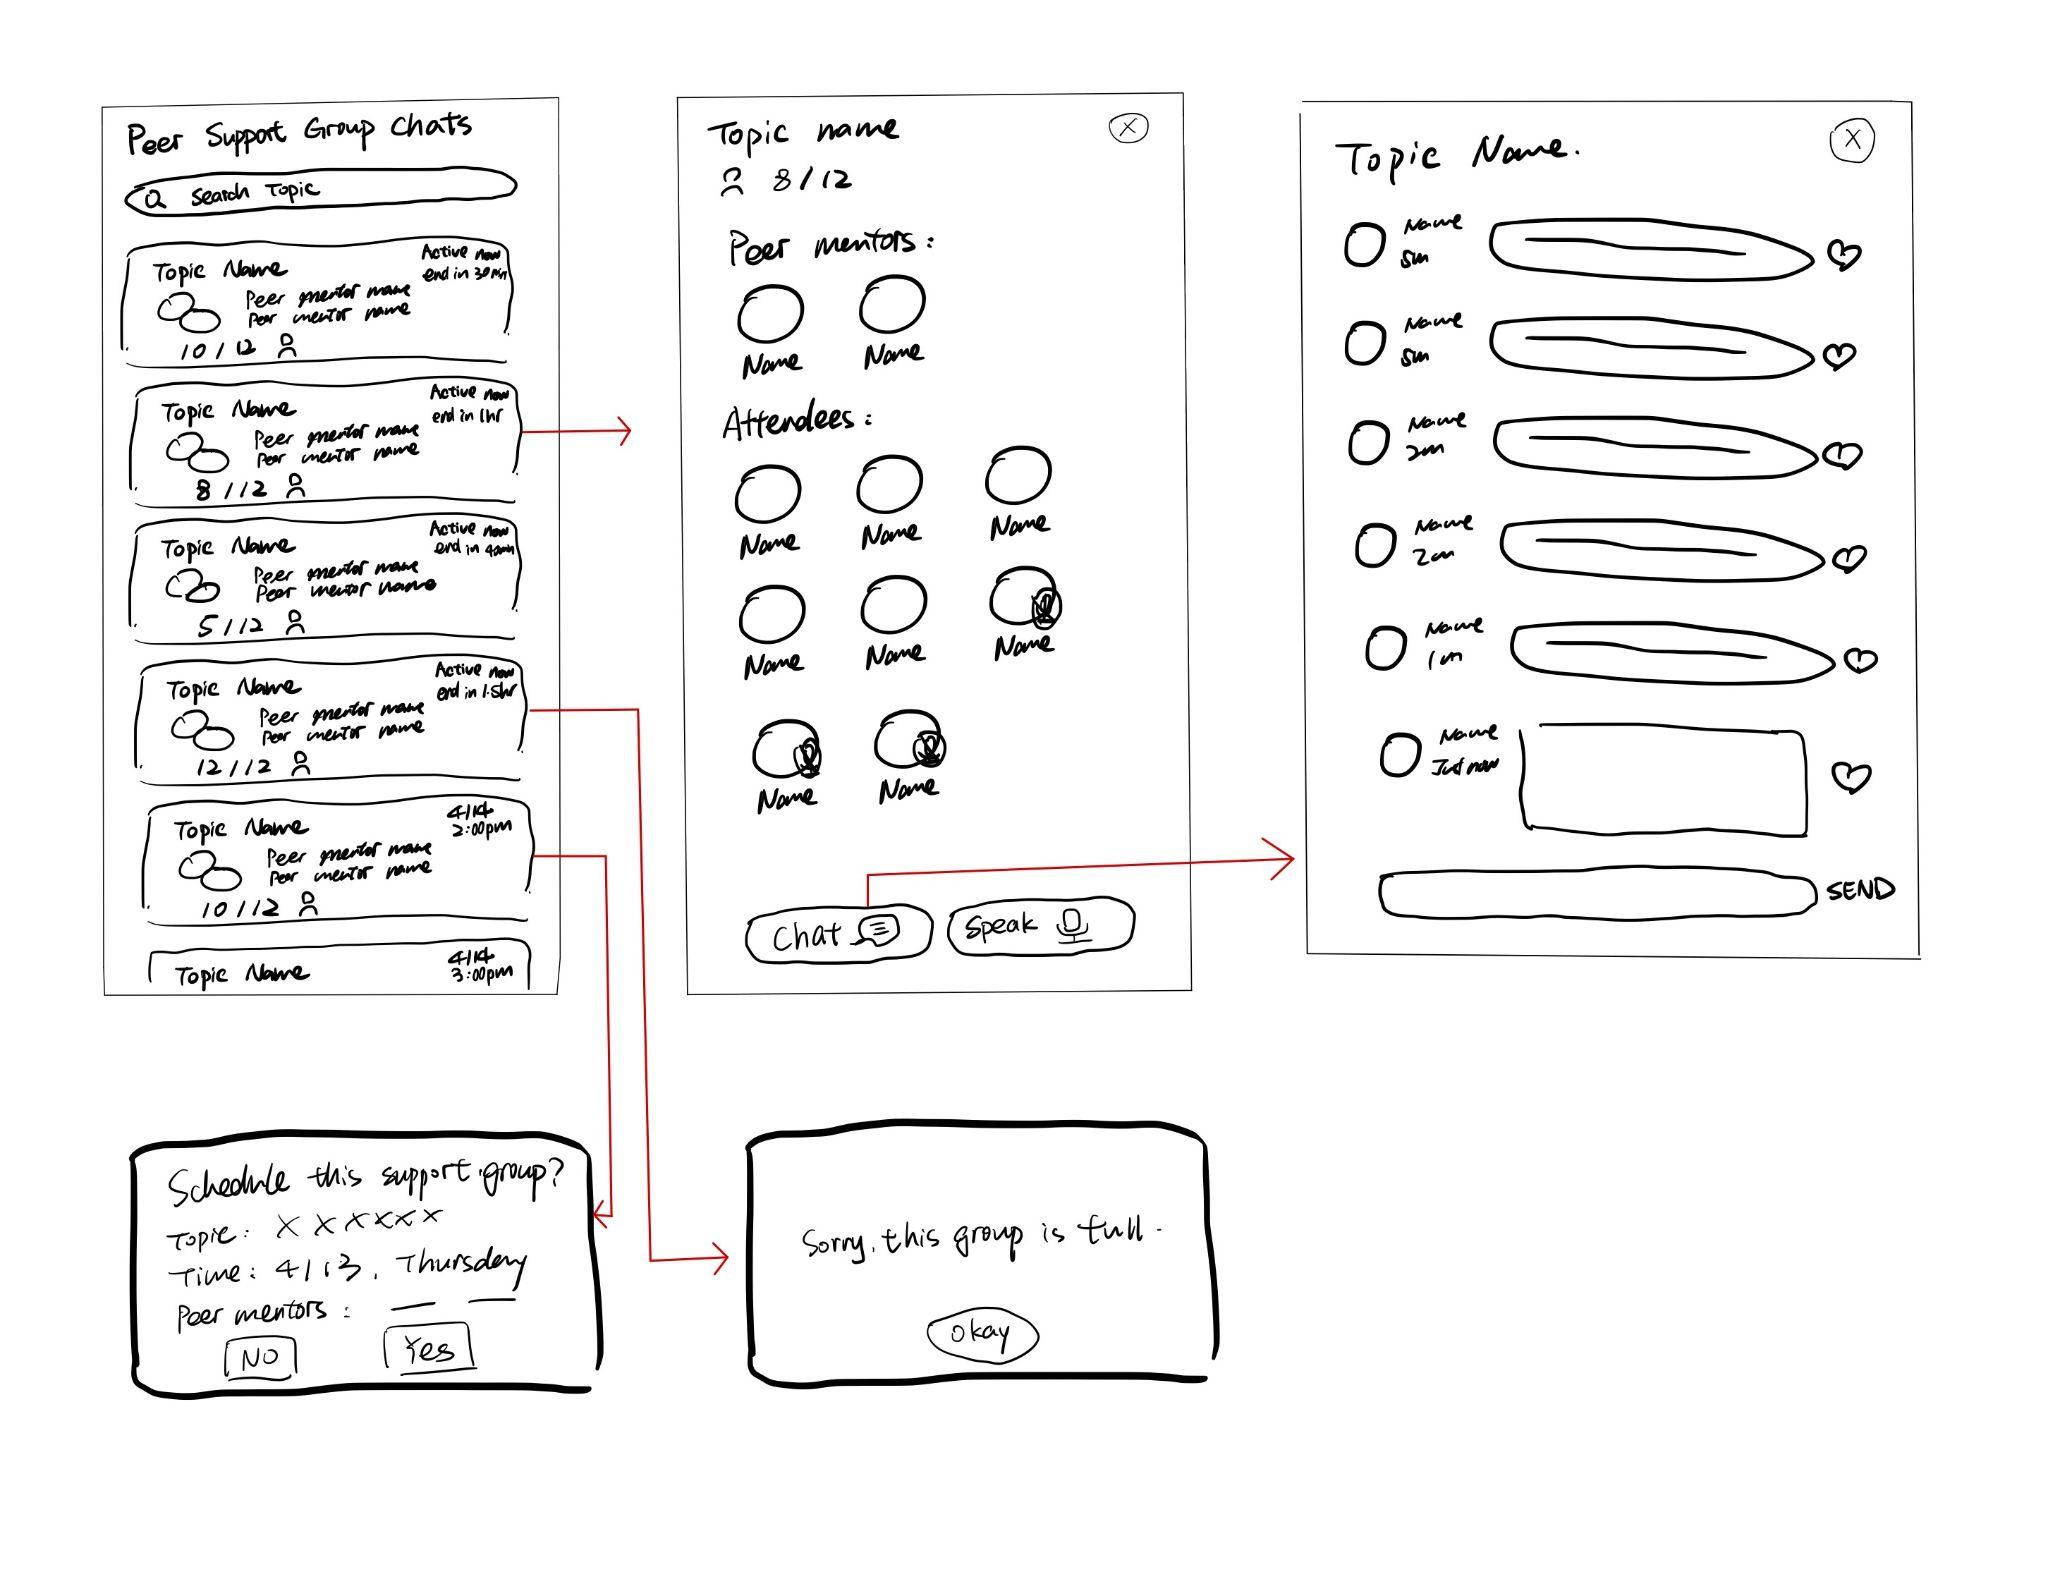 Peer Support Group Chats
Search Topic
Topic Name
Active now
end in 30min
Peer mentor name
Peer mentor name
10/12
Topic Name
Active now
end in 1hr
Peer mentor name
Peer mentor name
8/12
Topic Name
Active now
end in 40min
Peer mentor name
Peer mentor name
5/12
Topic Name
Active now
end in 1.5hr
Peer mentor name
Peer mentor name
12/12
Topic Name
4/14
2:00pm
Peer mentor name
Peer mentor name
10/12
Topic Name
4/14
3:00pm
Topic name
X
8/12
Peer mentors:
Name Name
Attendees:
Name Name Name
Name Name Name
Name Name
Chat
Speak
Topic Name.
X
Name
5m
Name
5m
Name
2m
Name
2m
Name
1m
Name
Just now
SEND
Schedule this support group?
Topic: X X X X X X
Time: 4/13, Thursday
Peer mentors:
NO Yes
Sorry, this group is full.
Okay